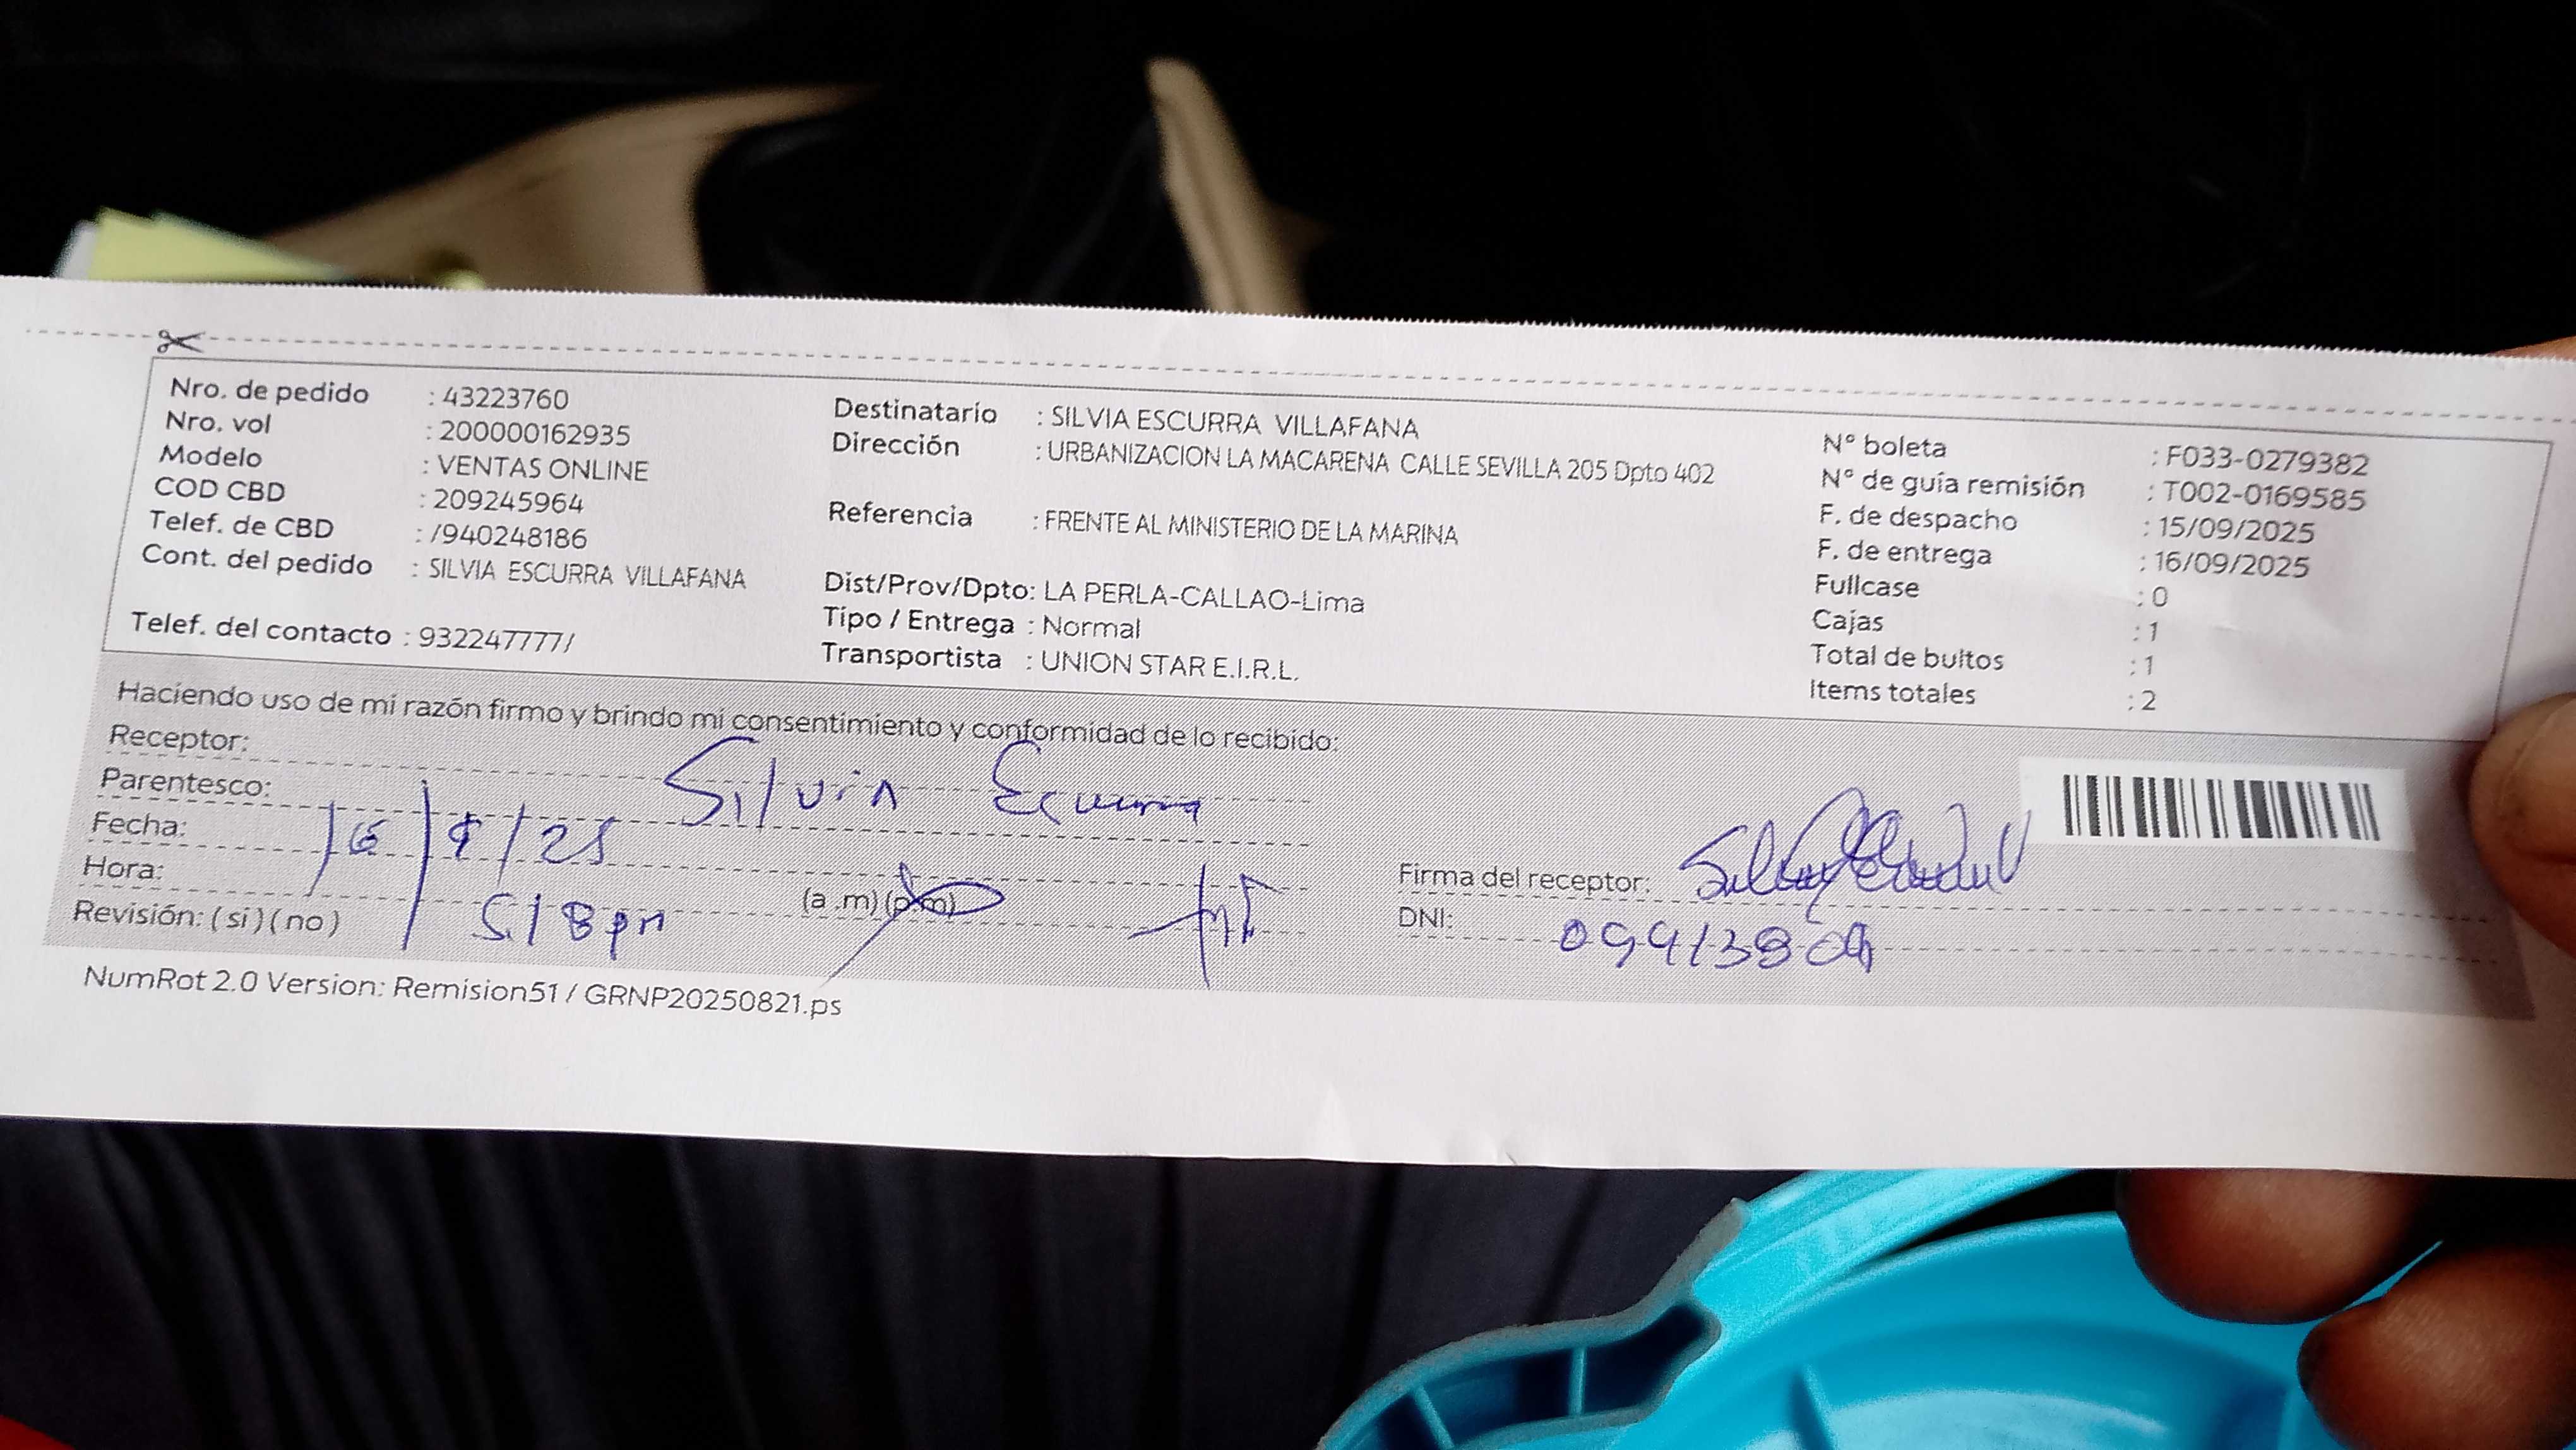 Nro. de pedido : 43223760
Nro. vol : 200000162935
Modelo : VENTAS ONLINE
COD CBD : 209245964
Telef. de CBD : /940248186
Cont. del pedido : SILVIA ESCURRA VILLAFANA
Telef. del contacto : 932247777/
Destinatario : SILVIA ESCURRA VILLAFANA
Dirección : URBANIZACION LA MACARENA CALLE SEVILLA 205 Dpto 402
Referencia : FRENTE AL MINISTERIO DE LA MARINA
Dist/Prov/Dpto: LA PERLA-CALLAO-Lima
Tipo / Entrega : Normal
Transportista : UNION STAR E.I.R.L.
N° boleta : F033-0279382
N° de guía remisión : T002-0169585
F. de despacho : 15/09/2025
F. de entrega : 16/09/2025
Fullcase : 0
Cajas : 1
Total de bultos : 1
Items totales : 2
Haciendo uso de mi razón firmo y brindo mi consentimiento y conformidad de lo recibido:
Receptor: Silvia
Parentesco:
Fecha: 16/9/25
Hora: (a.m) (p.m)
Revisión: (si) (no)
Firma del receptor:
DNI:
NumRot 2.0 Version: Remision51 / GRNP20250821.ps